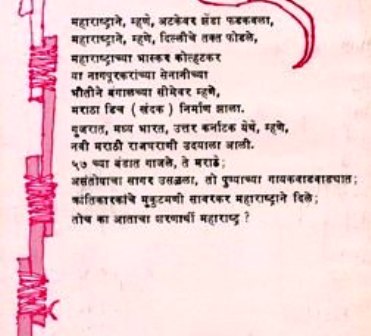 महाराष्ट्राने, म्हणे, अटकेवर झेंडा फडकवला,
महाराष्ट्राने, म्हणे, दिल्लीचे तक्त फोडले,
महाराष्ट्राच्या भास्कर कोल्हटकर
या नागपूरकरांच्या सेनानीच्या
भीतीने बंगालच्या सीमेवर म्हणे,
मराठा डिच ( खंदक ) निर्माण झाला.
गुजरात, मध्य भारत, उत्तर कर्नाटक येथे, म्हणे,
नवी मराठी राजघराणी उदयाला आली.
५७ च्या बंडात गाजले, ते मराठे;
असंतोषाचा सागर उसळला, तो पुण्याच्या गायकवाडवाड्यात;
क्रांतिकारकांचे मुकुटमणी सावरकर महाराष्ट्राने दिले;
तोच का आताचा शरणार्थी महाराष्ट्र ?